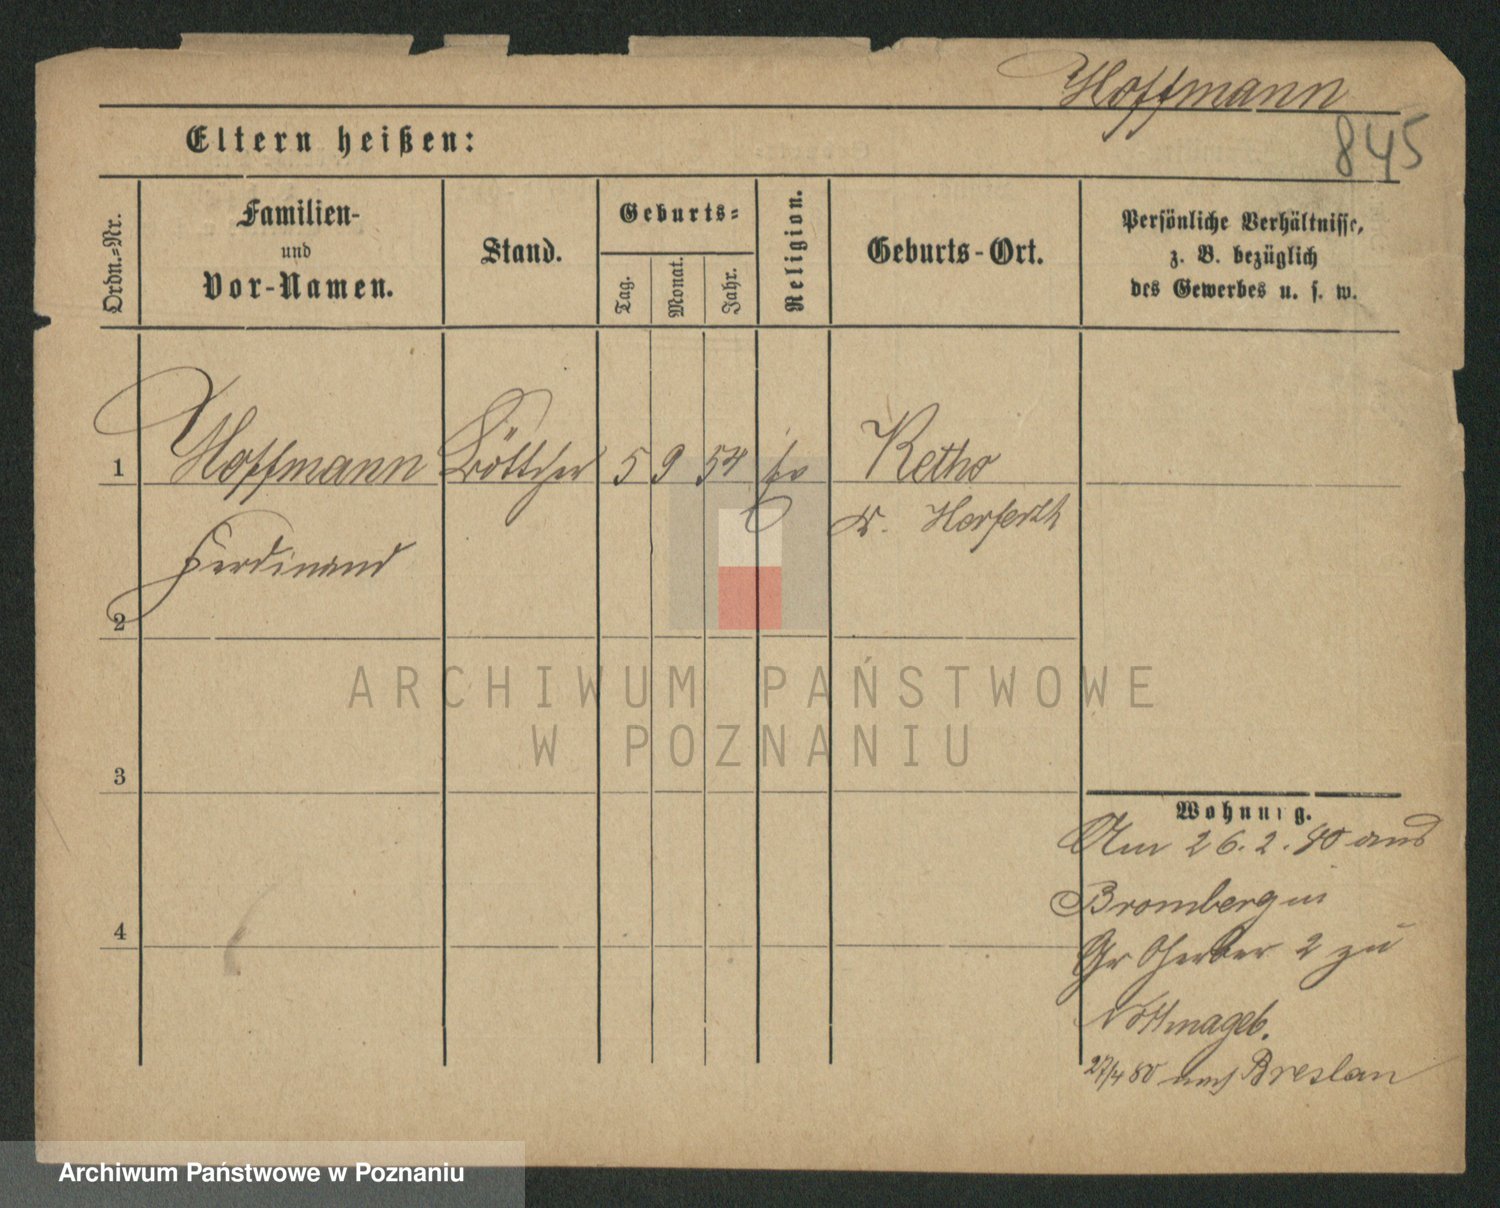 Hoffmann
845
Eltern heißen:
Ordn.=Nr.
Familien-
und
Vor-Namen.
Stand.
Geburts=
Tag.
Monat.
Jahr.
Religion.
Geburts-Ort.
Persönliche Verhältnisse,
z. B. bezüglich
des Gewerbes u. s. w.
1 Hoffmann Böttcher 5 9 54 ev Retho
Kr.
Ferdinand
2
3
4
Wohnung.
Am 26. 2. 80 aus
Bromberg in
Gr Gerber 2 zu
27/4 80 nach Breslau
ARCHIWUM PAŃSTWOWE
W POZNANIU
Archiwum Państwowe w Poznaniu